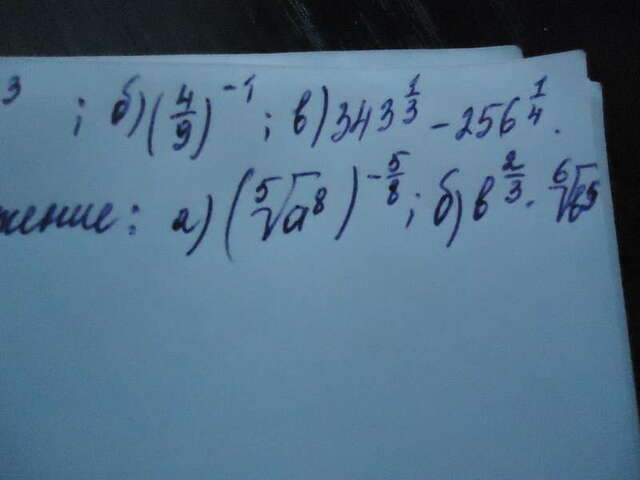 3 ; б) (4/9)^-1 ; в) 343^1/3 - 256^1/4.
жение: а) (⁵√a⁸)^-5/8 ; б) в^2/3 · ⁶√в⁵